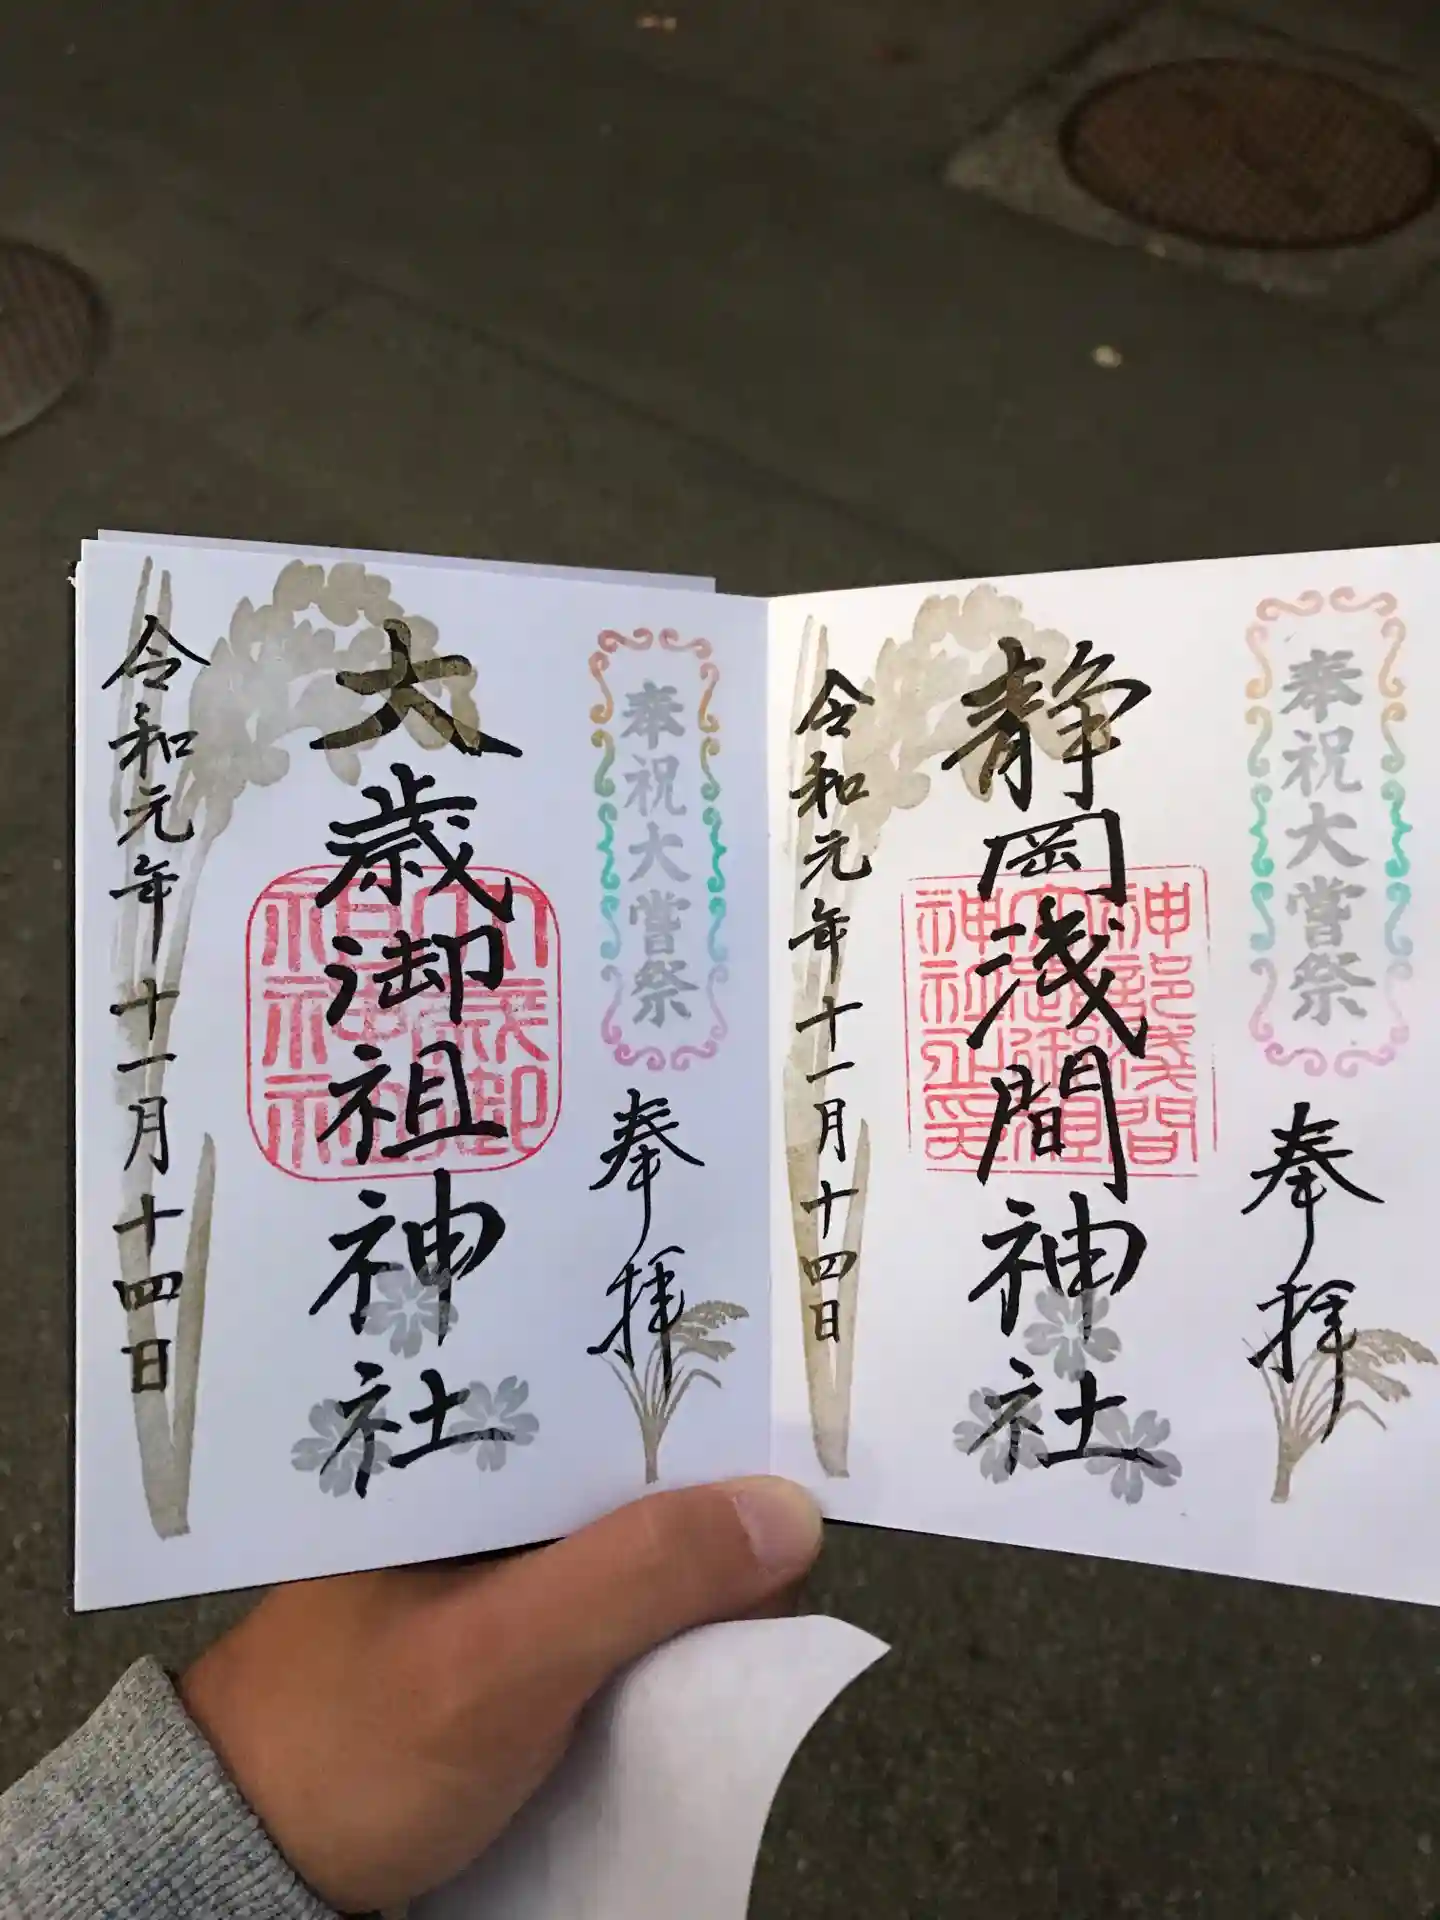 奉祝大嘗祭
奉拝
静岡浅間神社
神部浅間
大歳御祖
神社之印
令和元年十一月十四日
奉祝大嘗祭
奉拝
大歳御祖神社
大歳御
祖神社
令和元年十一月十四日